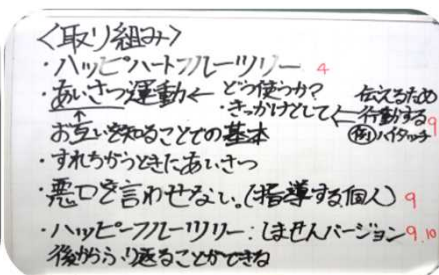 〈取り組み〉
・ハッピーハートフルーツリー 4
・あいさつ運動← どう使うか?
・きっかけとして← 伝えるため
行動する 9
例 ハイタッチ
↑
お互いを知ることでの基本
・すれちがうときにあいさつ
・悪口を言わせない。(指導する、個人) 9
・ハッピーフルーツリー:しませんバージョン 9.10
後からふり返ることができる